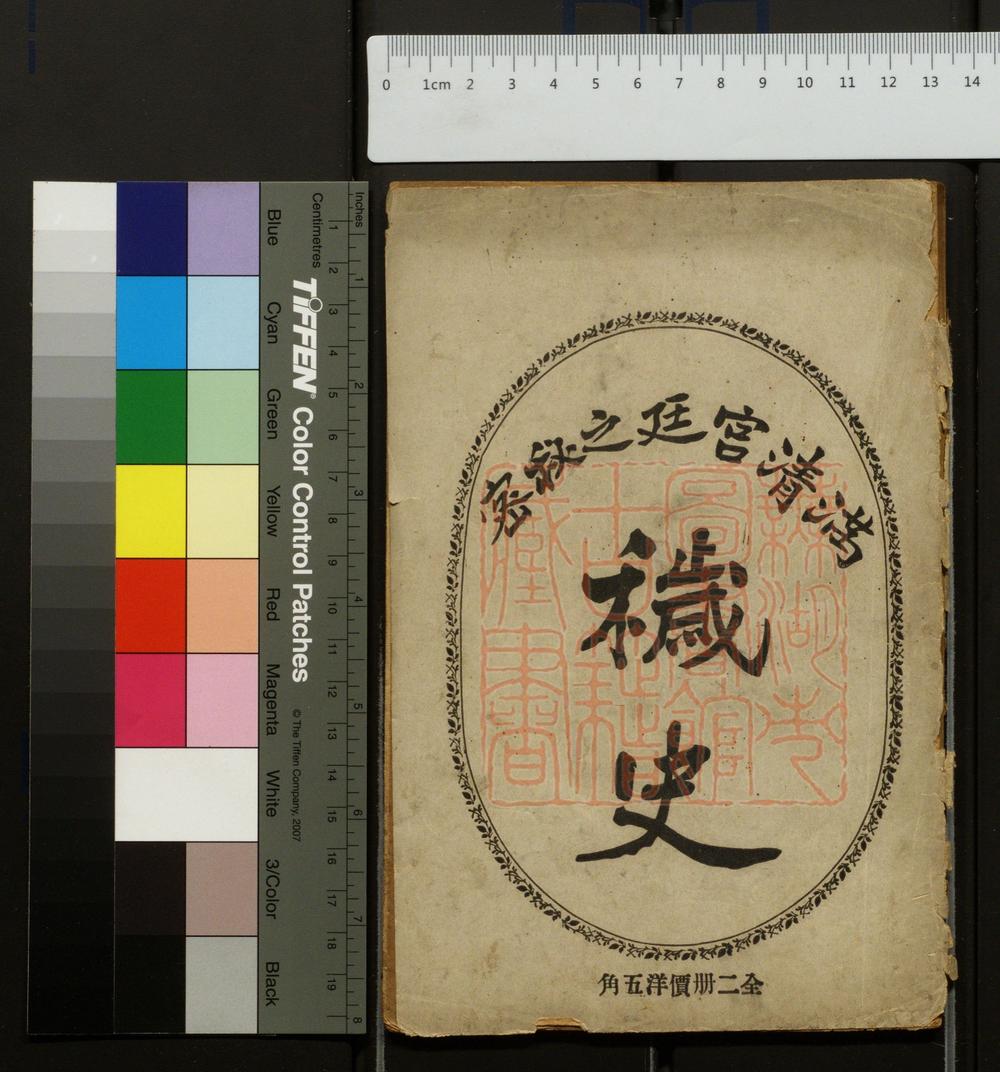 0 1cm 2 3 4 5 6 7 8 9 10 11 12 13 14
Inches 1 2 3 4 5 6 7 8
Centimetres 1 2 3 4 5 6 7 8 9 10 11 12 13 14 15 16 17 18 19
TIFFEN® Color Control Patches © The Tiffen Company, 2007
Blue Cyan Green Yellow Red Magenta White 3/Color Black
滿清宮廷之秘密
穢史
藏書
全二冊價洋五角